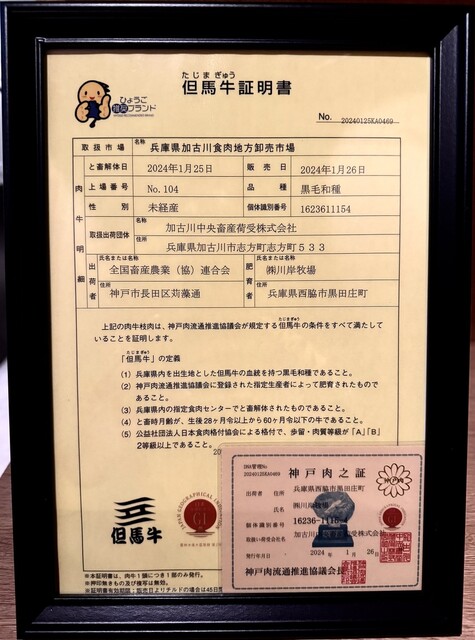 ひょうご
推奨ブランド
たじまぎゅう
但馬牛証明書
No. 20240125KA0469
取扱市場 名称 兵庫県加古川食肉地方卸売市場
肉牛明細
と畜解体日 2024年1月25日 販売日 2024年1月26日
上場番号 No.104 品種 黒毛和種
性別 未経産 個体識別番号 1623611154
取扱出荷団体 名称 加古川中央畜産荷受株式会社
住所 兵庫県加古川市志方町志方町533
出荷者 氏名または名称 全国畜産農業(協)連合会 肥育者 氏名または名称 ㈱川岸牧場
住所 神戸市長田区苅藻通 住所 兵庫県西脇市黒田庄町
上記の肉牛枝肉は、神戸肉流通推進協議会が規定する但馬牛の条件をすべて満たして
たじまぎゅう
いることを証明します。
たじまぎゅう
「但馬牛」の定義
(1) 兵庫県内を出生地とした但馬牛の血統を持つ黒毛和種であること。
(2) 神戸肉流通推進協議会に登録された指定生産者によって肥育されたもので
あること。
(3) 兵庫県内の指定食肉センターでと畜解体されたものであること。
(4) と畜時月齢が、生後28ヶ月令以上から60ヶ月令以下の牛であること。
(5) 公益社団法人日本食肉格付協会による格付で、歩留・肉質等級が「A」「B」
2等級以上であること。
但馬牛
GI
※本証明書は、肉牛1頭につき1部のみ発行。
※押印無きもの及び複写は無効。
※証明書有効期間:販売日よりチルドの場合は45日
DNA管理No
20240125KA0469
神戸肉之証
出荷者 住所 兵庫県西脇市黒田庄町
氏名 ㈱川岸牧場
個体識別番号 16236-1115-4
取扱い荷受会社名 加古川
株式会社
発行年月日 2024年1月26日
神戸肉流通推進協議会長